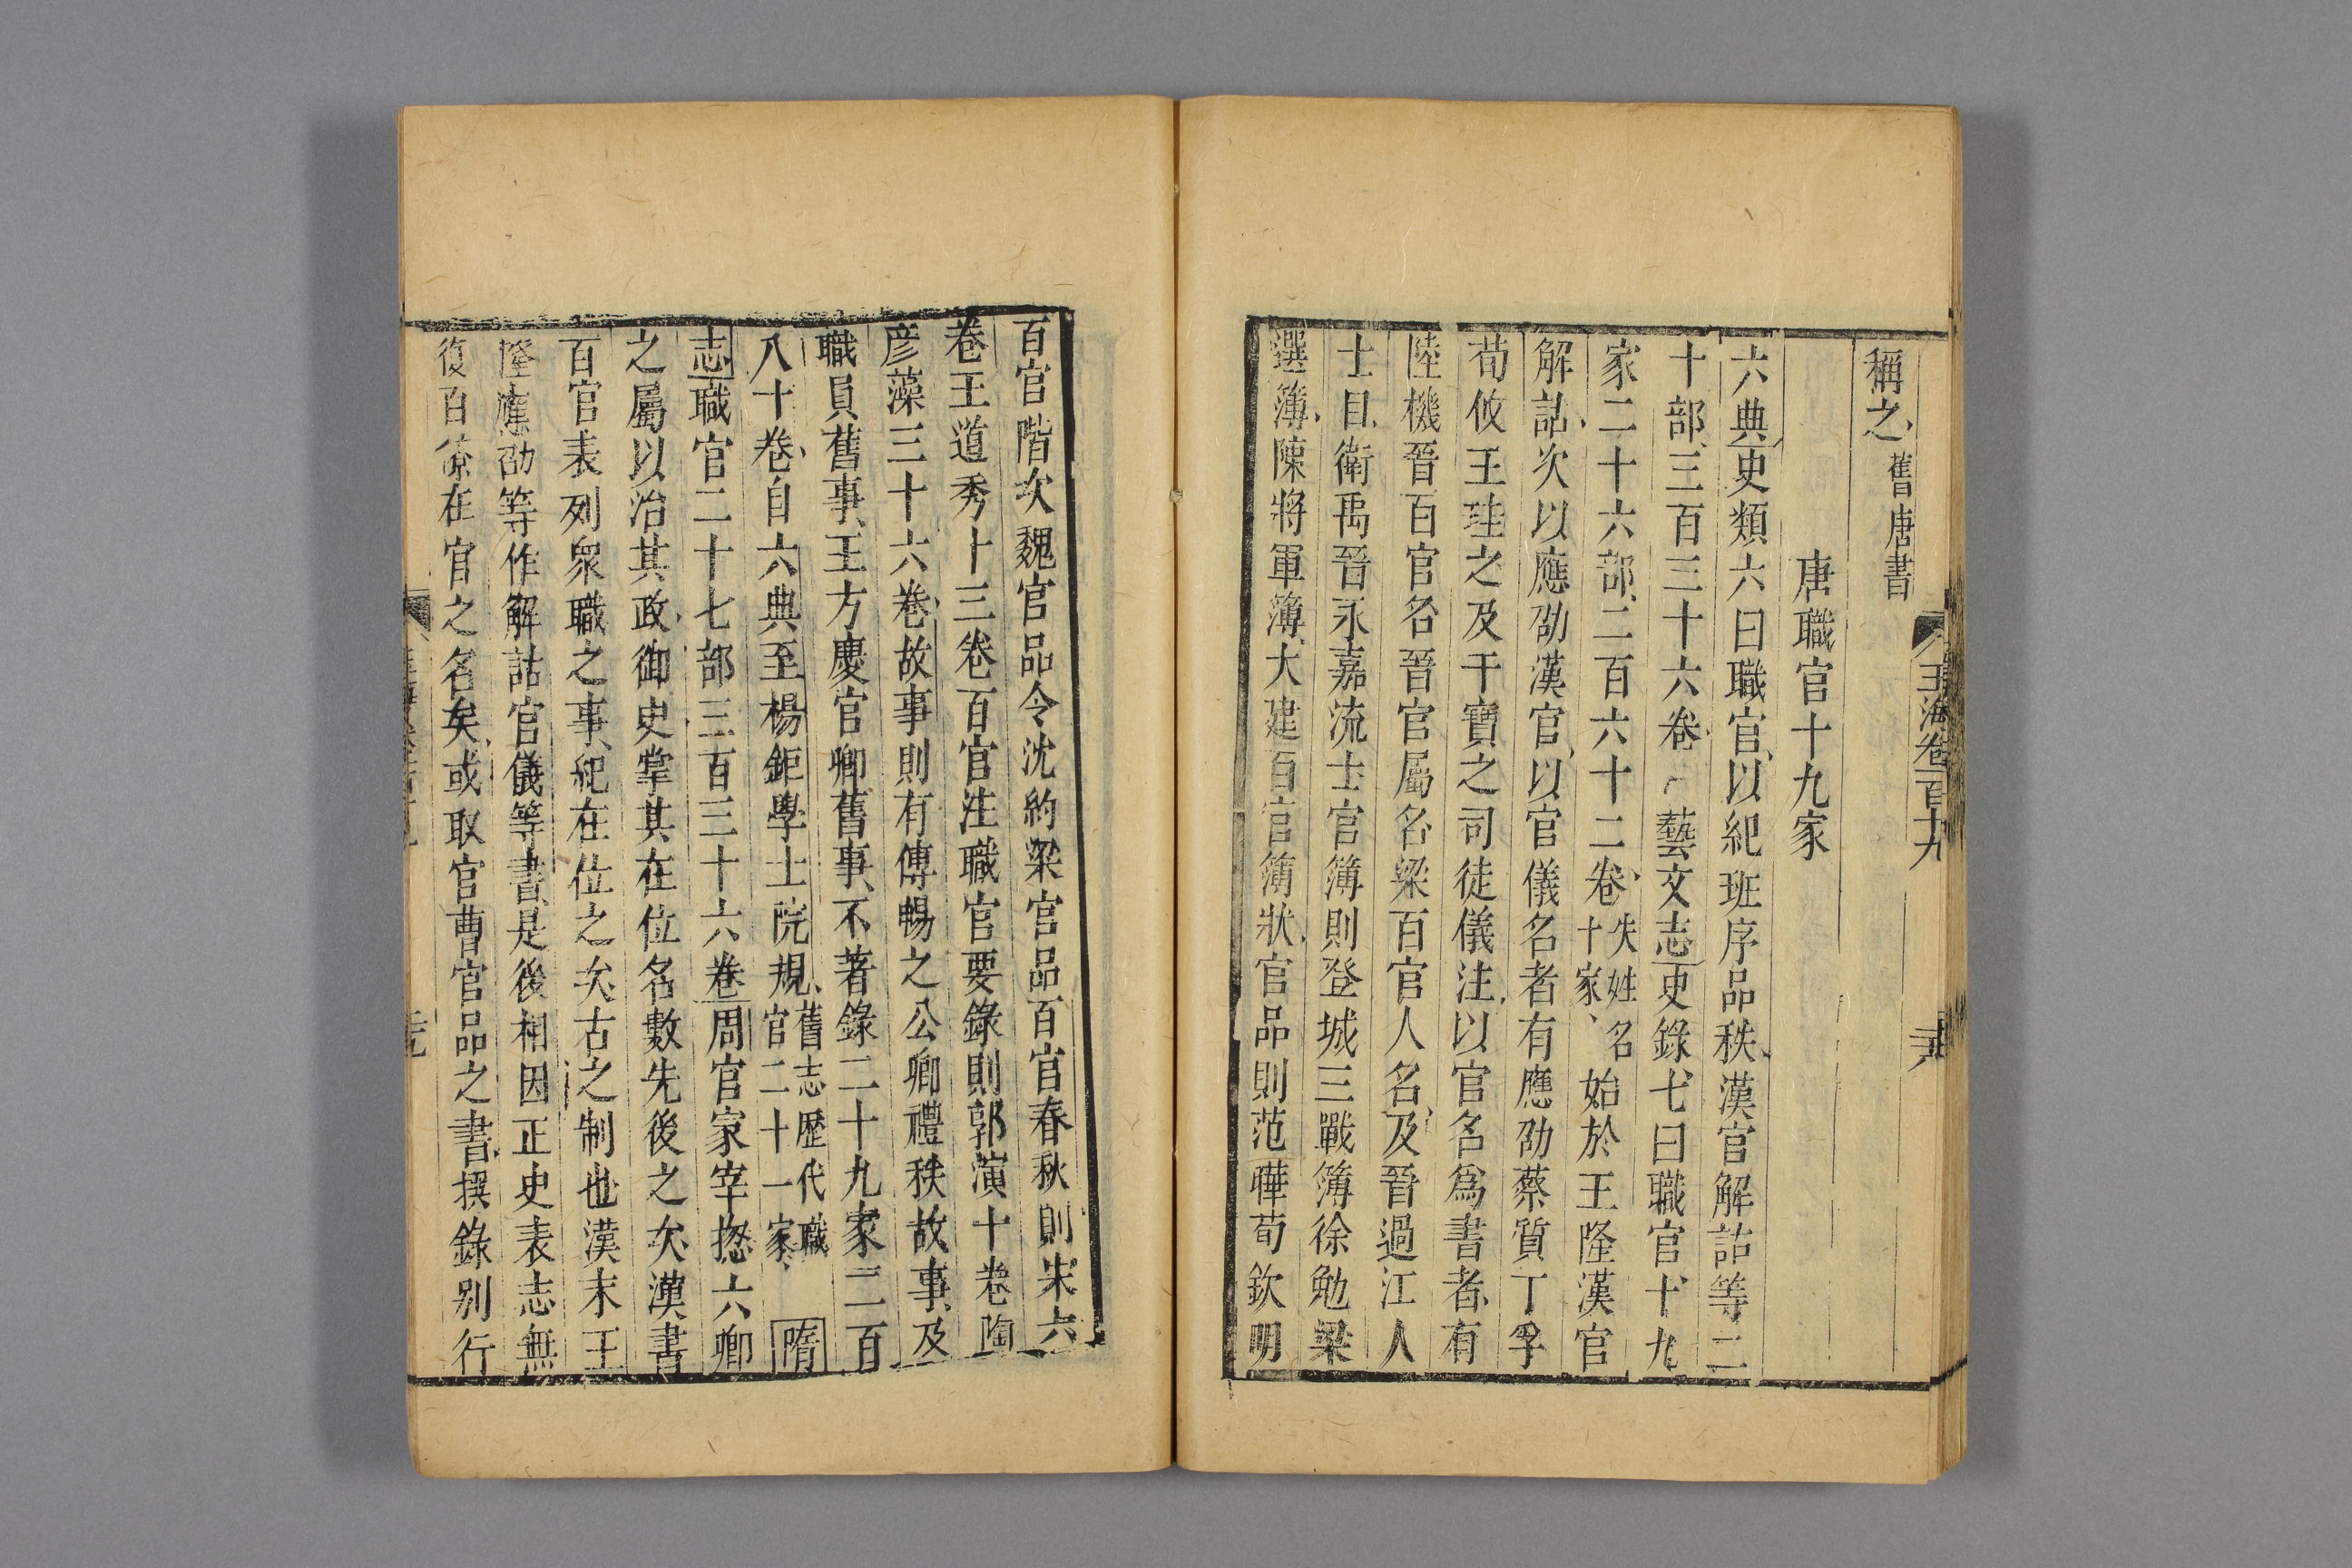 玉海卷一百十九
稱之舊唐書
唐職官十九家
六典史類六曰職官以紀班序品秩漢官解詁等二
十部三百三十六卷藝文志史錄七曰職官十九
家二十六部二百六十二卷失姓名十家始於王隆漢官
解詁次以應劭漢官以官儀名者有應劭蔡質丁孚
荀攸王珪之及干寶之司徒儀注以官名爲書者有
陸機晉百官名晉官屬名梁百官人名及晉過江人
士目衛禹晉永嘉流士官簿則登城三戰簿徐勉梁
選簿陳將軍簿大建百官簿狀官品則范曄荀欽明
百官階次魏官品令沈約梁官品百官春秋則宋六
卷王道秀十三卷百官注職官要錄則郭演十卷陶
彥藻三十六卷故事則有傅暢之公卿禮秩故事及
職員舊事王方慶官卿舊事不著錄二十九家二百
八十卷自六典至楊鉅學士院規舊志歷代職官二十一家隋
志職官二十七部三百三十六卷周官家宰揔六卿
之屬以治其政御史掌其在位名數先後之次漢書
百官表列衆職之事紀在位之次古之制也漢末王
隆應劭等作解詁官儀等書是後相因正史表志無
復百僚在官之名矣或取官曹官品之書撰錄別行